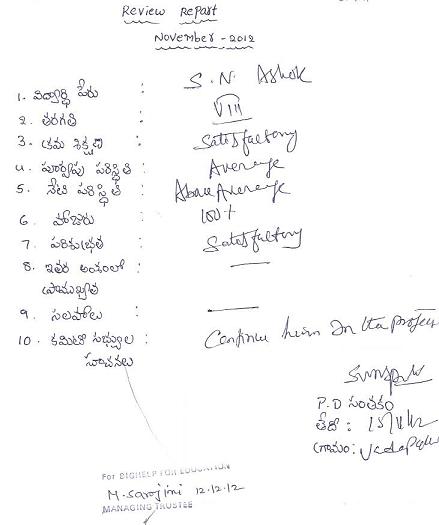 Review Report
November - 2012
1. విద్యార్థి పేరు : S. N. Ashok
2. తరగతి : VIII
3. క్రమ శిక్షణ : Satisfactory
4. పూర్వపు పరిస్థితి : Average
5. నేటి పరిస్థితి : Above Average
6. హాజరు : 100%
7. పరిశుభ్రత : Satisfactory
8. ఇతర అంశంలో : —
ప్రాముఖ్యత
9. సలహాలు : —
10. కమిటీ సభ్యుల : Continue him in the project
సూచనలు
P.D సంతకం
తేది :
గ్రామం :
For BIGHELP FOR EDUCATION
M. Sarojini 12.12.12
MANAGING TRUSTEE